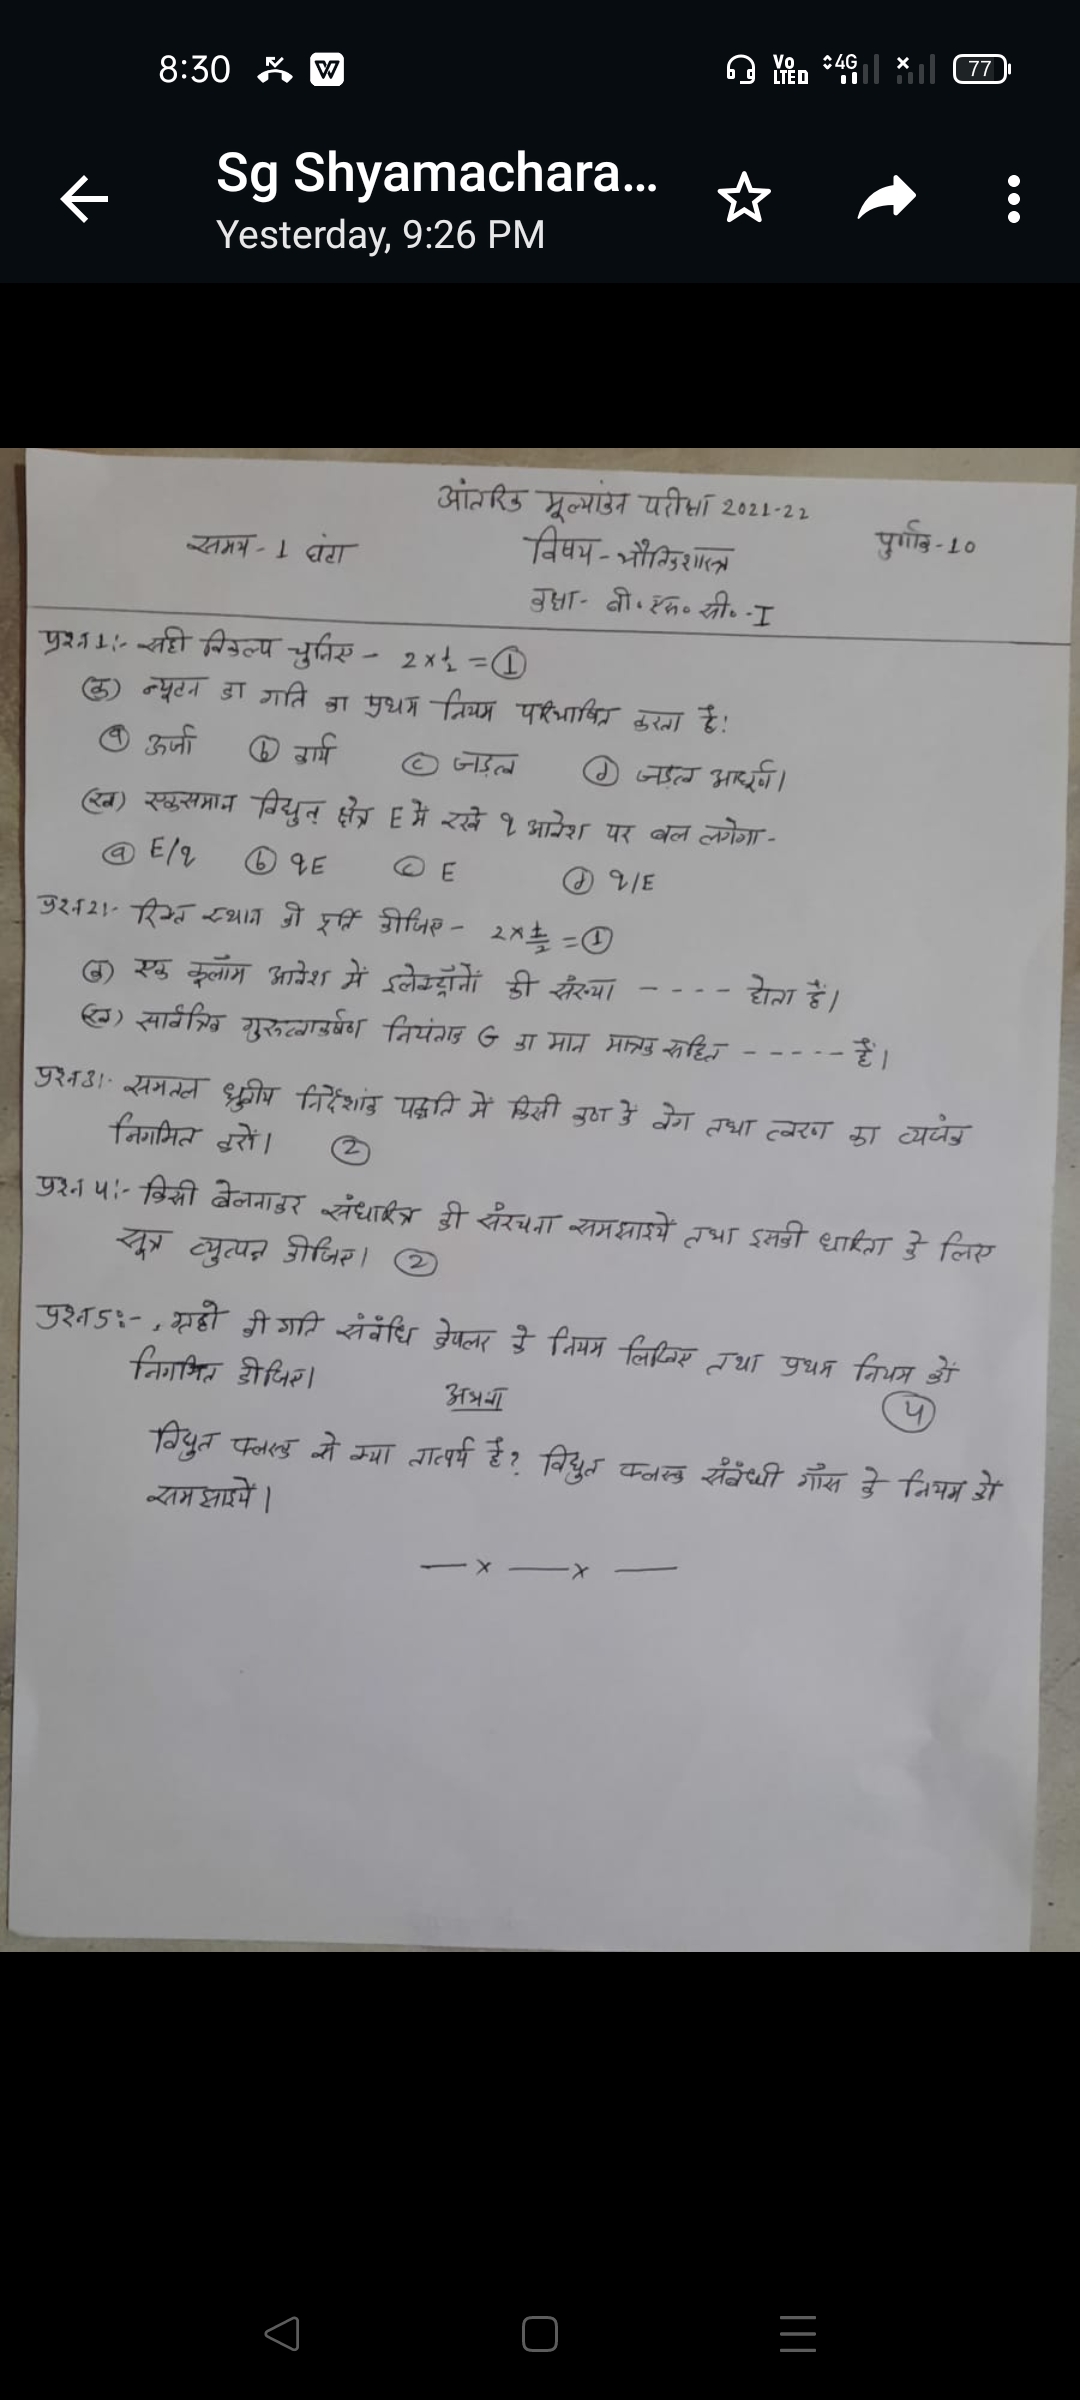 8:30
Vo LTE 4G 77
Sg Shyamachara...
Yesterday, 9:26 PM
आंतरिक मूल्यांकन परीक्षा 2021-22
समय - 1 घंटा विषय - भौतिकशास्त्र पूर्णांक - 10
कक्षा - बी. एस. सी. - I
प्रश्न 1:- सही विकल्प चुनिए - 2 × 1/2 = 1
(क) न्यूटन का गति का प्रथम नियम परिभाषित करता है:
a ऊर्जा b कार्य c जड़त्व d जड़त्व आघूर्ण।
(ख) एकसमान विद्युत क्षेत्र E में रखे q आवेश पर बल लगेगा -
a E/q b qE c E d q/E
प्रश्न 2:- रिक्त स्थान की पूर्ति कीजिए - 2 × 1/2 = 1
(क) एक कूलॉम आवेश में इलेक्ट्रॉनों की संख्या ---- होता हैं।
(ख) सार्वत्रिक गुरुत्वाकर्षण नियंताक G का मान मात्रक सहित ----- है।
प्रश्न 3:- समतल ध्रुवीय निर्देशांक पद्धति में किसी कण के वेग तथा त्वरण का व्यंजक
निगमित करों। 2
प्रश्न 4:- किसी बेलनाकर संधारित्र की संरचना समझाइये तथा इसकी धारिता के लिए
सूत्र व्युत्पन्न कीजिए। 2
प्रश्न 5:- ग्रहो की गति संबंधि केपलर के नियम लिखिए तथा प्रथम नियम कों
निगमित कीजिए। 4
अथवा
विद्युत फ्लक्स से क्या तात्पर्य है? विद्युत फ्लक्स संबंधी गॉस के नियम को
समझाइये।
— x — x —